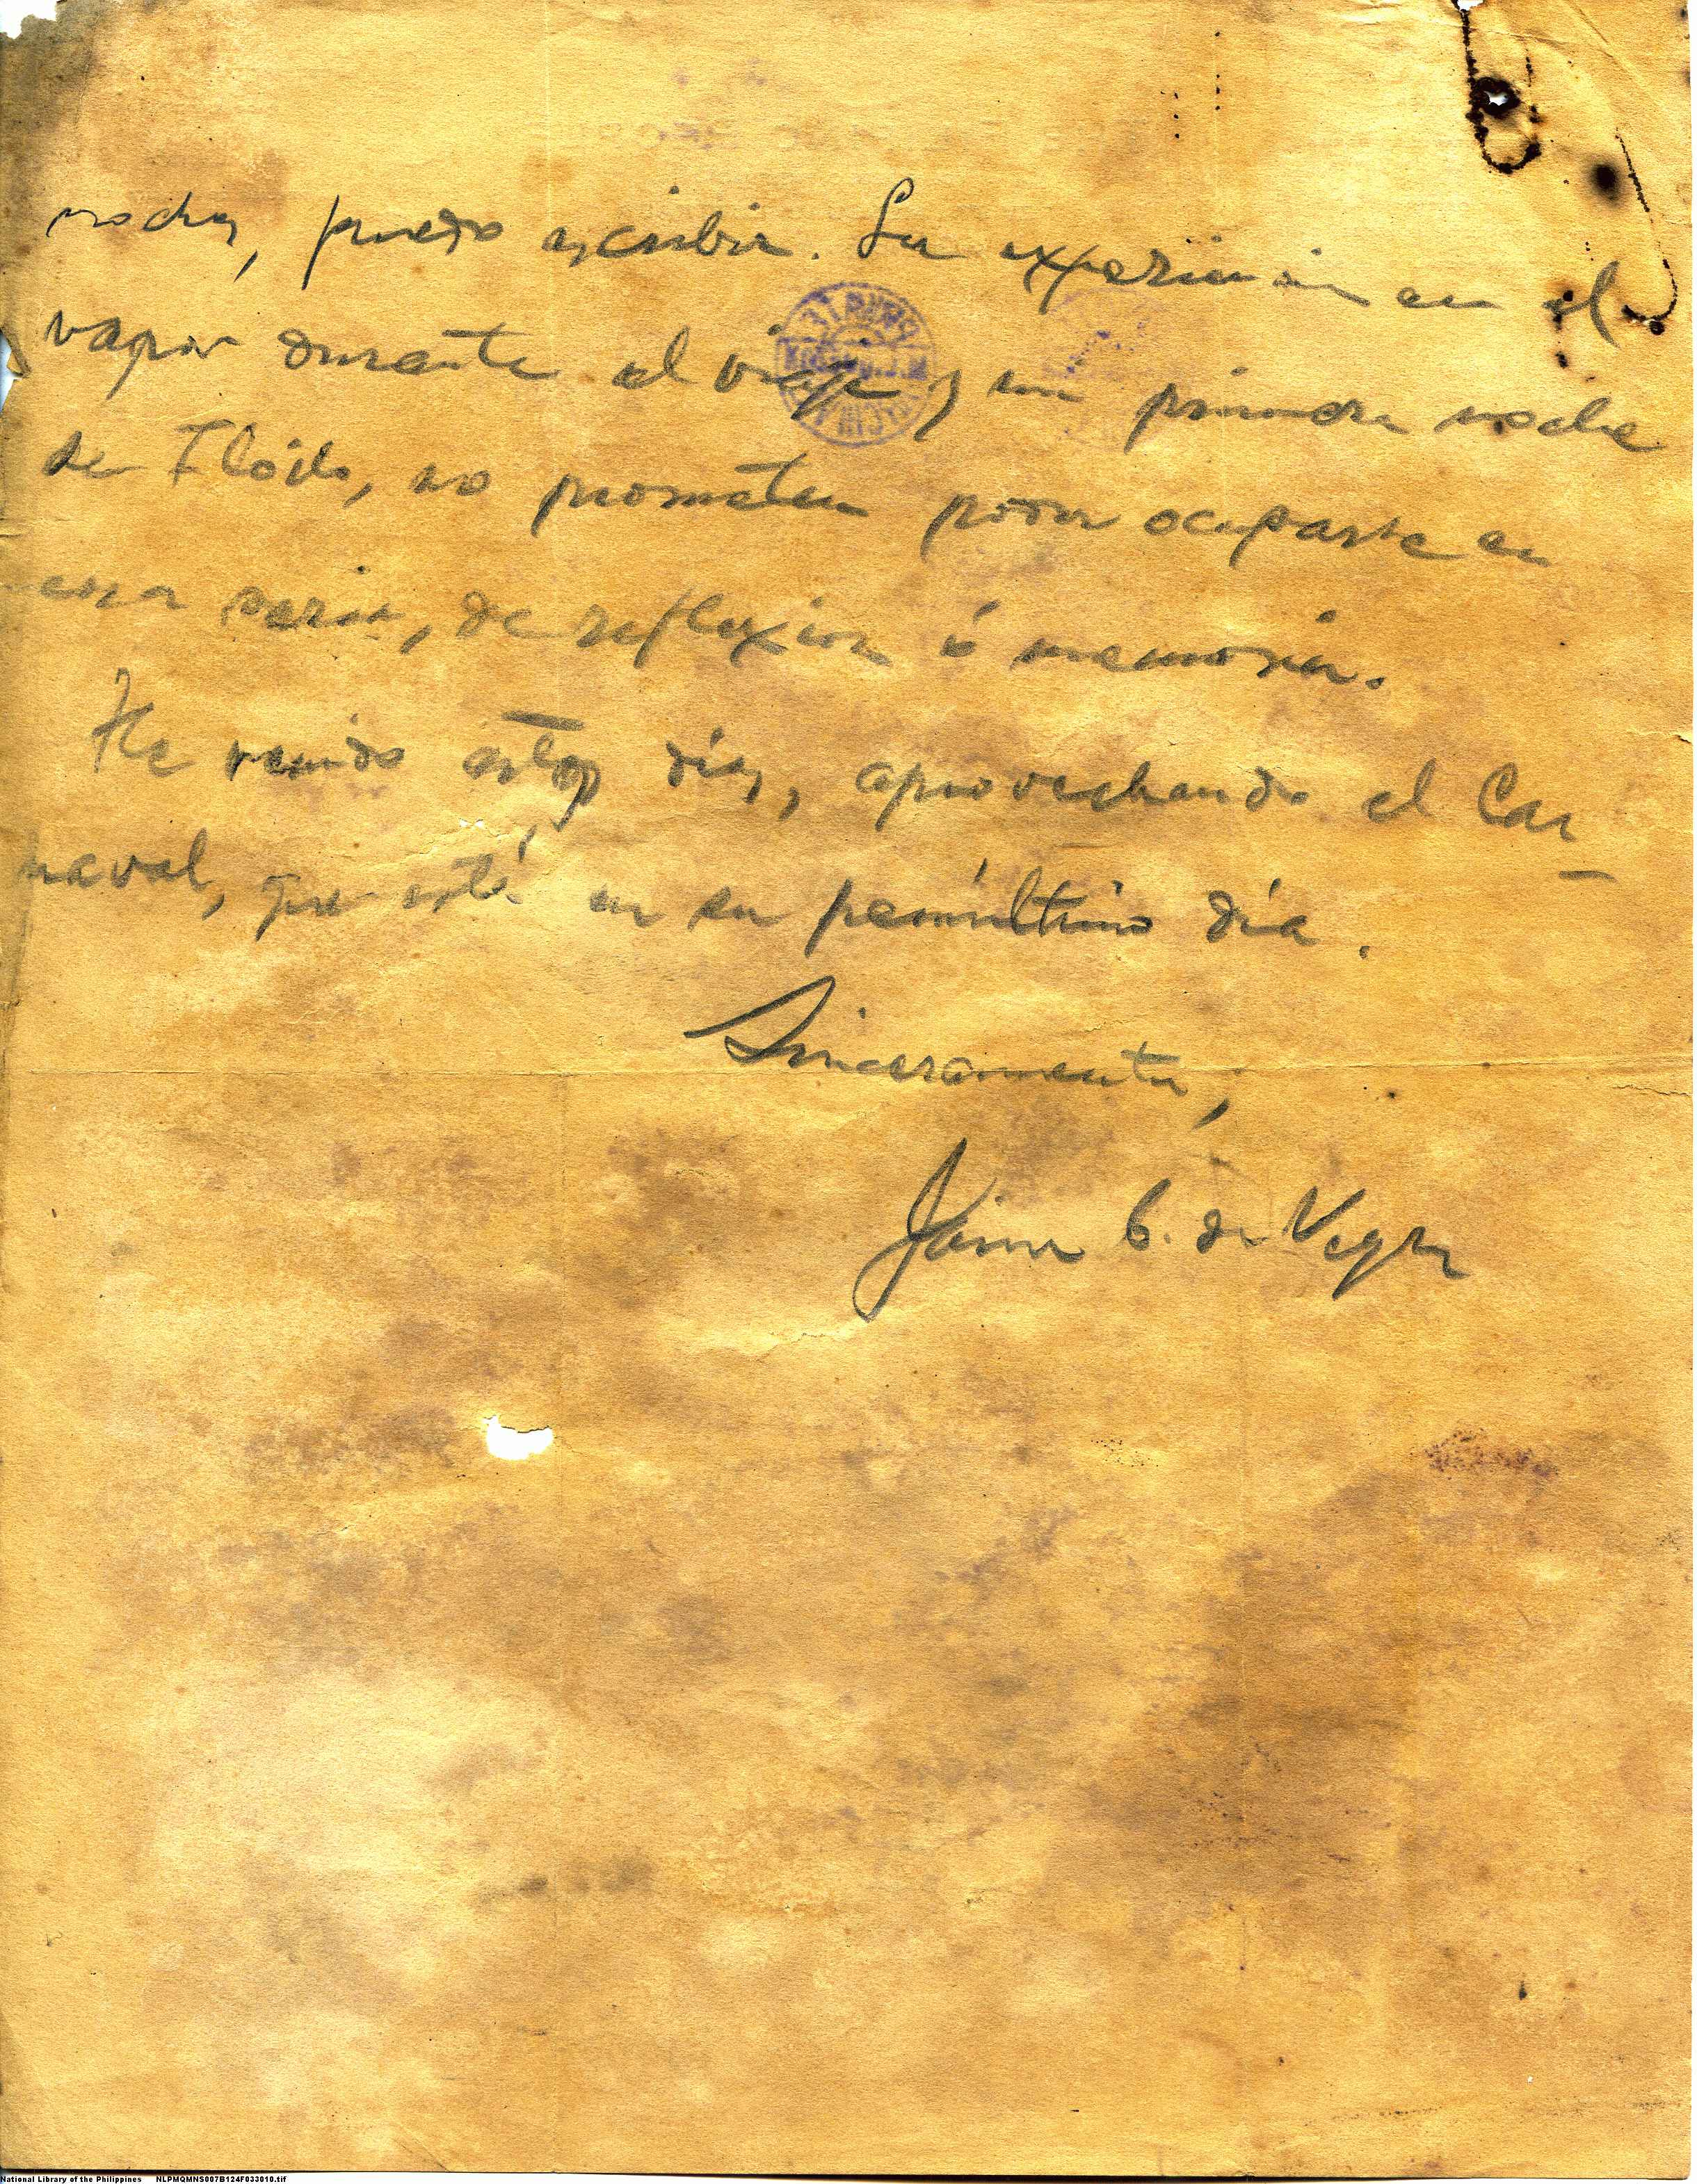 noches, puedo escribir. La experiencia en el
vapor durante el viaje y mi primera noche
de Iloilo, no prometen poder ocuparte en
cosa seria, de reflexion ó memoria.
He venido estos días, aprovechando el Car-
naval, que está en su penúltimo día.
Sinceramente,
Jaime C. de Veyra
National Library of the Philippines NLPMQMNS007B124F033010.tif